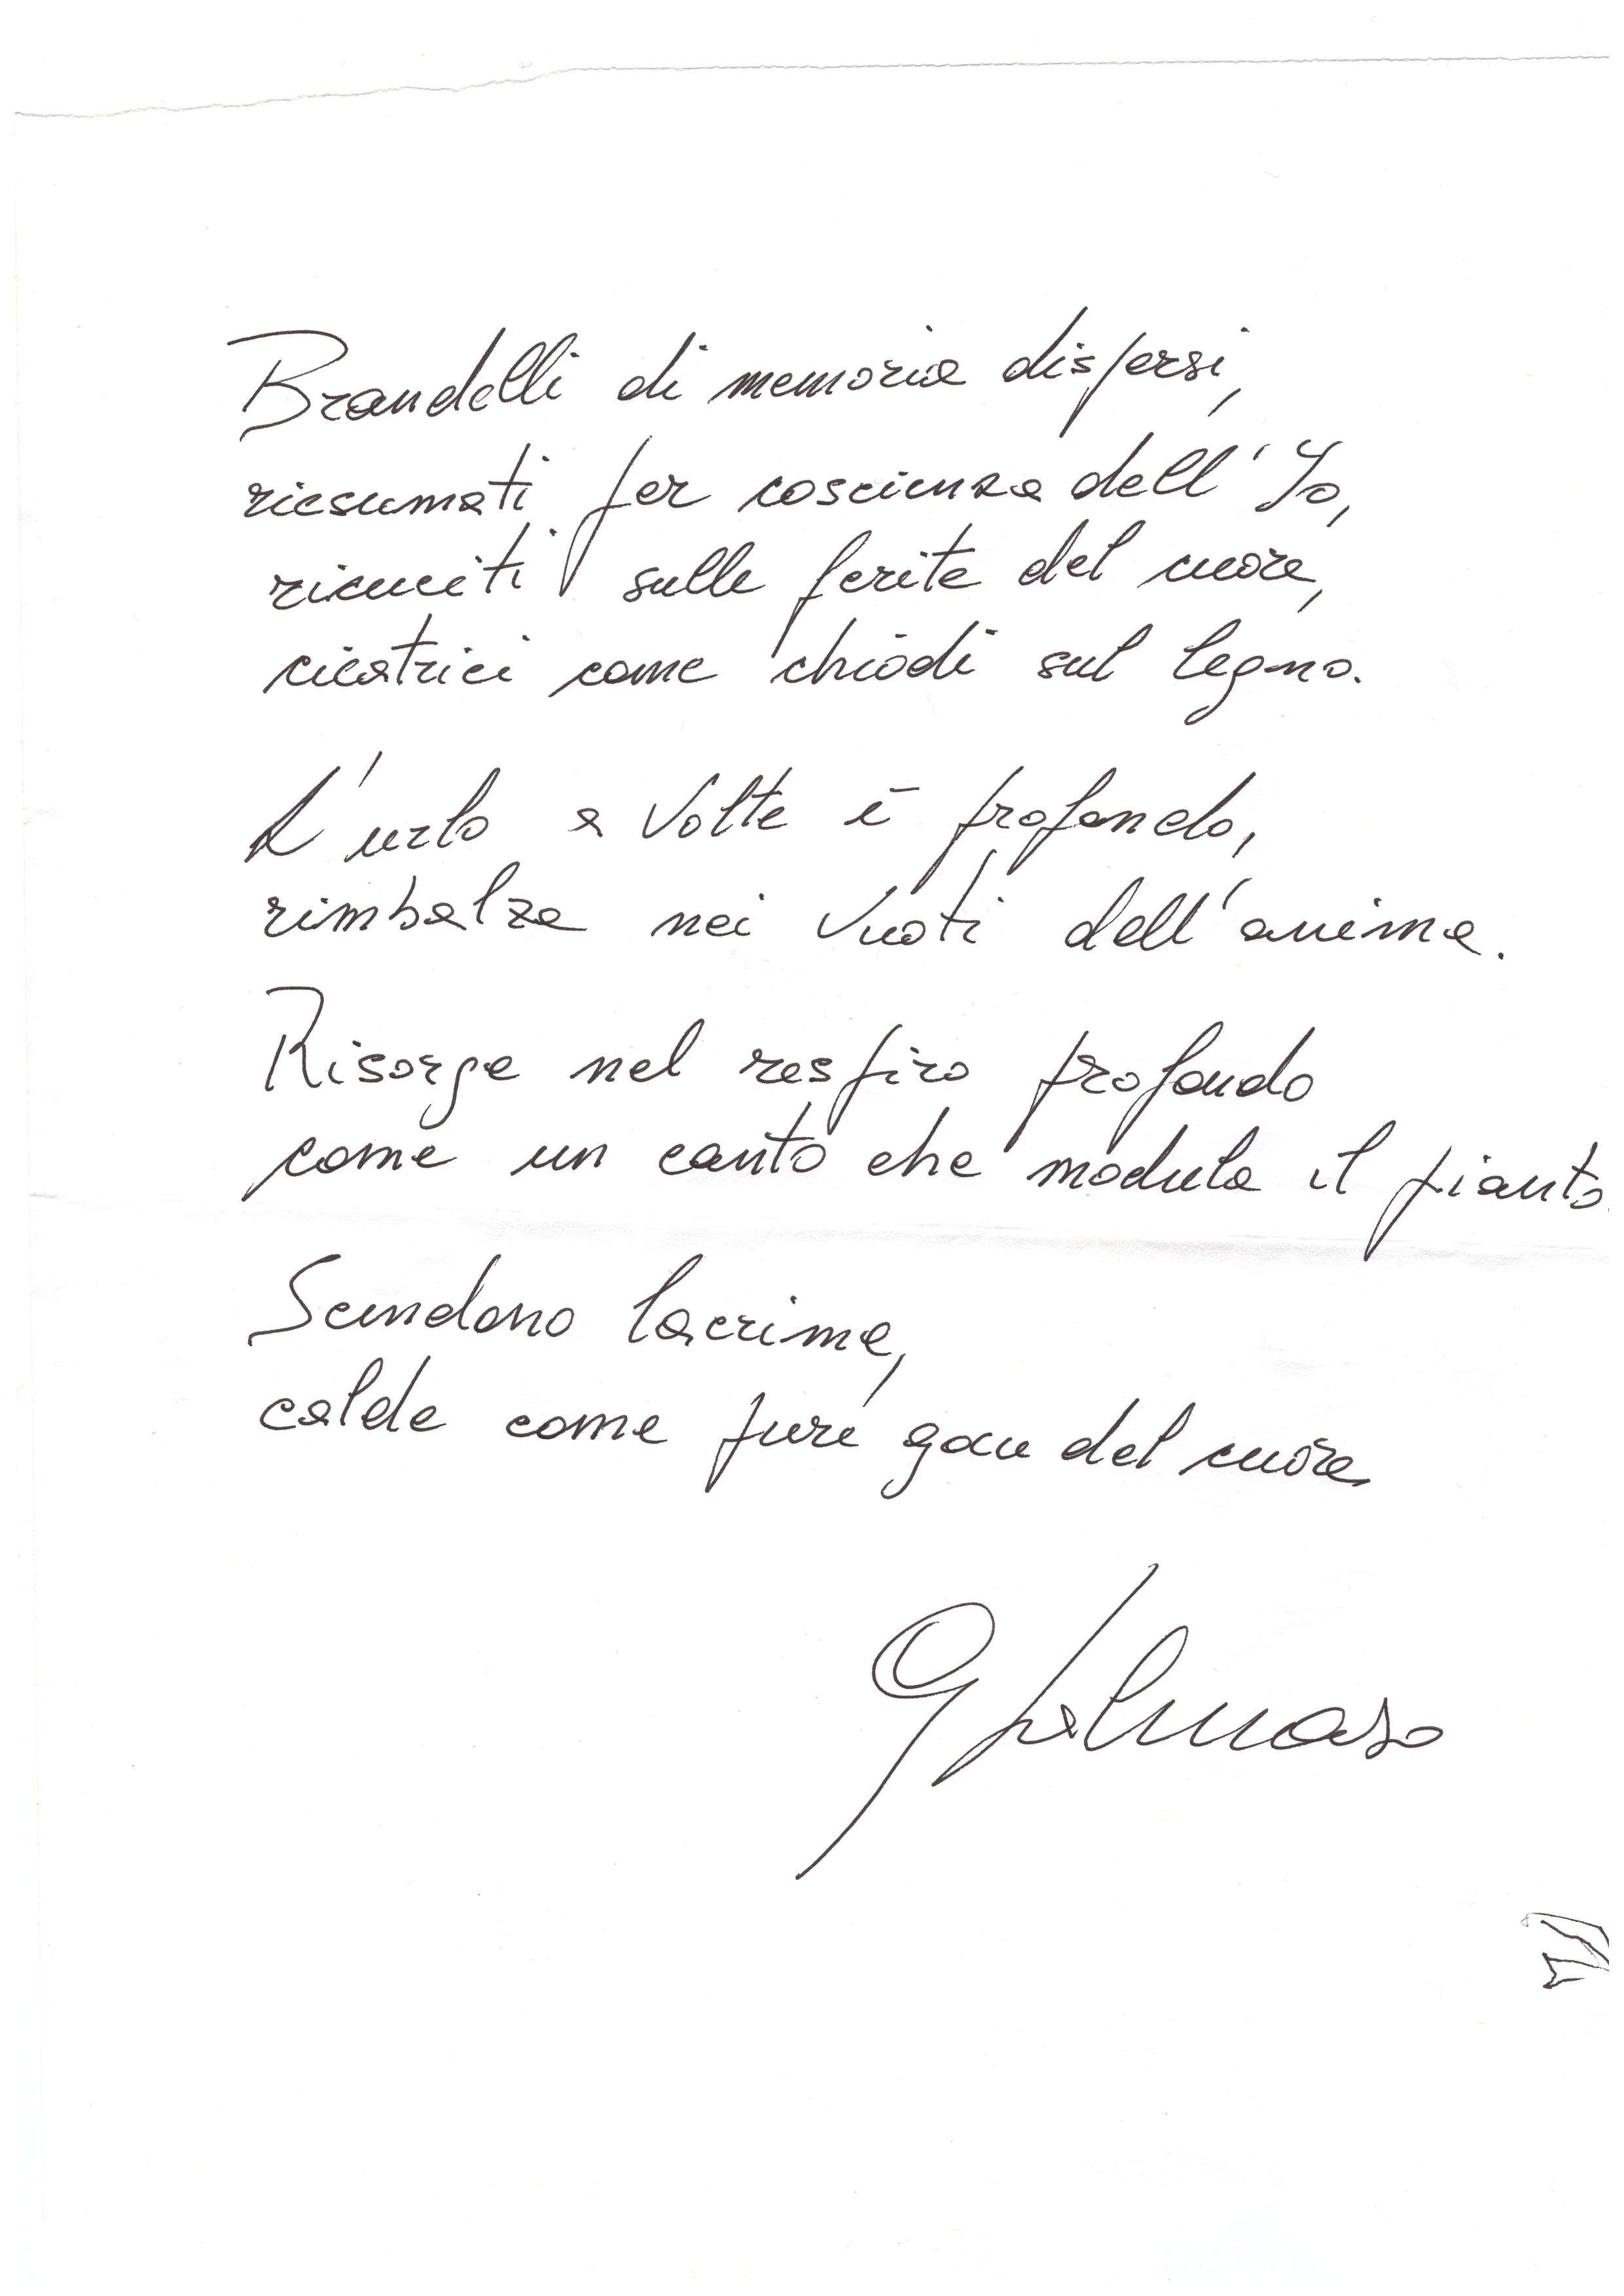 Brandelli di memoria dispersi,
riesumati per coscienza dell'Io,
ricuciti sulle ferite del cuore,
cicatrici come chiodi sul legno.
L'urlo a volte è profondo,
rimbalza nei vuoti dell'anima.
Risorge nel respiro profondo
come un canto che modula il pianto.
Scendono lacrime,
calde come pure gocce del cuore